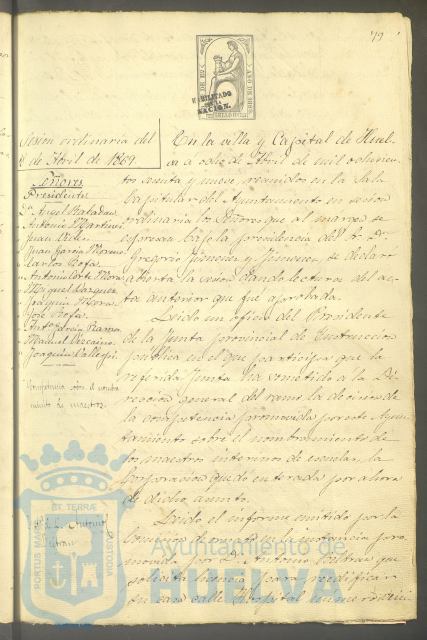 79
HABILITADO
POR LA
NACION.
Sesion ordinaria del
8 de Abril de 1869.
Señores
Presidente
D. Angel Baladau
Antonio Martinez
Juan
Juan Garcia Moreno
Carlos Rofa
Antonio Corte Mora
Miguel Vazquez
Joaquin Moran
José Rofa
Anto
Manuel Vizcaino
Joaquin Vallejo
Competencia sobre el nombra
miento de maestros.
En la villa y Capital de Huel-
va a ocho de Abril de mil ochocien-
tos sesenta y nueve, reunidos en la Sala
Capitular del Ayuntamiento en sesion
ordinaria los Señores que al margen se
espresan bajo la presidencia del Sr. D.
Gregorio Jimenez y Jimenez se declaró
abierta la sesion dando lectura del ac-
ta anterior que fue aprobada.
Leido un oficio del Presidente
de la Junta provincial de Instruccion
publica en el que participa que la
referida Junta ha sometido a la Di-
reccion general del ramo la decision de
la competencia promovida por este Ayun-
tamiento sobre el nombramiento de
los maestros interinos de escuelas, la
Corporacion quedó enterada por ahora
de dicho asunto.
Leido el informe emitido por la
Comision de ornato en la instancia pro-
movida por D. Antonio Beltran que
solicita licencia para reedificar
su casa calle Hospital número
PORTUS MARIS
ET TERRÆ
CUSTODIA
Ayuntamiento de
HUELVA